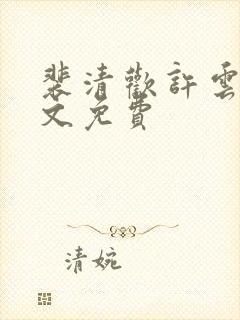 裴清歡許雲
文免費
清婉